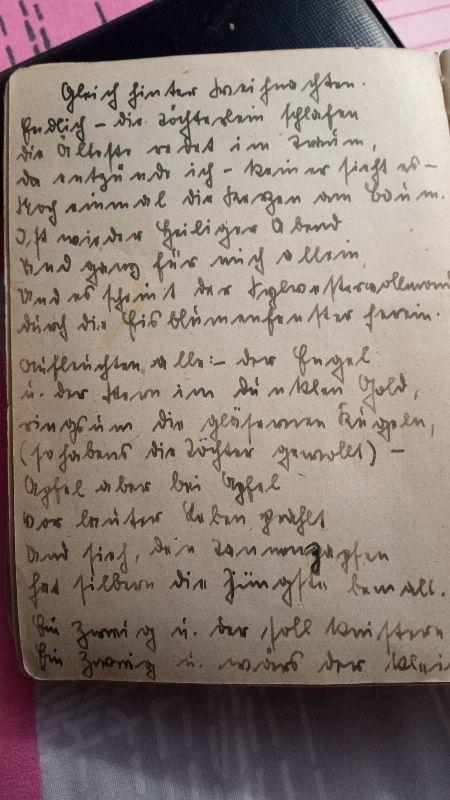 Gleich hinter Weihnachten.
Endlich – die Töchterlein schlafen
die Älteste redet im Traum,
da entzünde ich – keiner sieht es –
Noch einmal die Kerzen am Baum.
Ist wieder Heiliger Abend
Und ganz für mich allein,
Und es scheint der Sylvestervollmond
durch die Eisblumenfenster herein.
Aufleuchten alle: – der Engel
u. der Stern im dunklen Gold,
ringsum die gläsernen Kugeln,
(so habens die Töchter gewollt) –
Apfel aber bei Apfel
Vor lauter Leben prahlt
Und sieh, den Tannenzapfen
hat silbern die Jüngste bemalt.
Ein Zweig u. der soll knistern
Ein Zweig u. wärs der